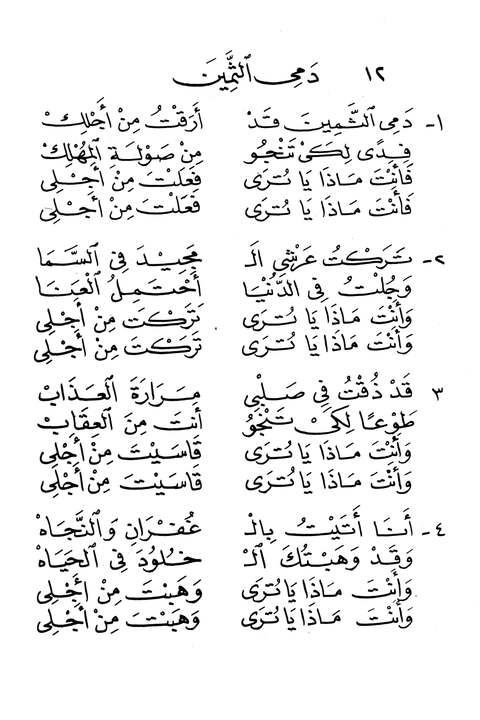 ١٢ دَمِى ٱلثَّمِينَ
١- دَمِى ٱلثَّمِينَ قَدْ أَرَقْتُ مِنْ أَجْلِكْ
فِدًى لِكَىْ تَنْجُو مِنْ صَوْلَةِ ٱلْمُهْلِكْ
فَأَنْتَ مَاذَا يَا تُرَى فَعَلْتَ مِنْ أَجْلِى
فَأَنْتَ مَاذَا يَا تُرَى فَعَلْتَ مِنْ أَجْلِى
٢- تَرَكْتُ عَرْشِى ٱلـ ـمَجِيدَ فِى ٱلسَّمَا
وَجُلْتُ فِى الدُّنْيَا أَحْتَمِلُ ٱلْعَنَا
وَأَنْتَ مَاذَا يَا تُرَى تَرَكْتَ مِنْ أَجْلِى
وَأَنْتَ مَاذَا يَا تُرَى تَرَكْتَ مِنْ أَجْلِى
٣ قَدْ ذُقْتُ فِى صَلْبِى مَرَارَةَ ٱلْعَذَابْ
طَوْعًا لِكَىْ تَنْجُوَ أَنْتَ مِنَ ٱلْعِقَابْ
وَأَنْتَ مَاذَا يَا تُرَى قَاسَيْتَ مِنْ أَجْلِى
وَأَنْتَ مَاذَا يَا تُرَى قَاسَيْتَ مِنْ أَجْلِى
٤- أَنَا أَتَيْتُ بِالـ ـغُفْرَانِ وَٱلنَّجَاهْ
وَقَدْ وَهَبْتُكَ ٱلْـ ـخُلُودَ فِى ٱلْحَيَاهْ
وَأَنْتَ مَاذَا يَا تُرَى وَهَبْتَ مِنْ أَجْلِى
وَأَنْتَ مَاذَا يَا تُرَى وَهَبْتَ مِنْ أَجْلِى